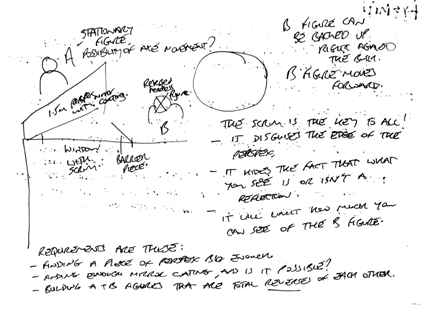 STATIONARY
FIGURE
A - POSSIBILITY OF ARM MOVEMENT?
B FIGURE CAN
BE BACKED UP
RIGHT AGAINST
THE BALL.
B FIGURE MOVES
FORWARD.
1.5M PERSPEX MIRROR
WITH COATING.
FIGURE
B
WINDOW
WITH
SCRIM
BARRIER
PIECE.
THE SCRIM IS THE KEY TO ALL!
- IT DISGUISES THE EDGE OF THE
PERSPEX,
- IT HIDES THE FACT THAT WHAT
YOU SEE IS OR ISN'T A
REFLECTION.
- IT WILL LIMIT HOW MUCH YOU
CAN SEE OF THE B FIGURE.
REQUIREMENTS ARE THESE:
- FINDING A PIECE OF PERSPEX BIG ENOUGH
- FINDING ENOUGH MIRROR COATING, AND IS IT POSSIBLE?
- BUILDING A + B FIGURES THAT ARE TOTAL REVERSES OF EACH OTHER.